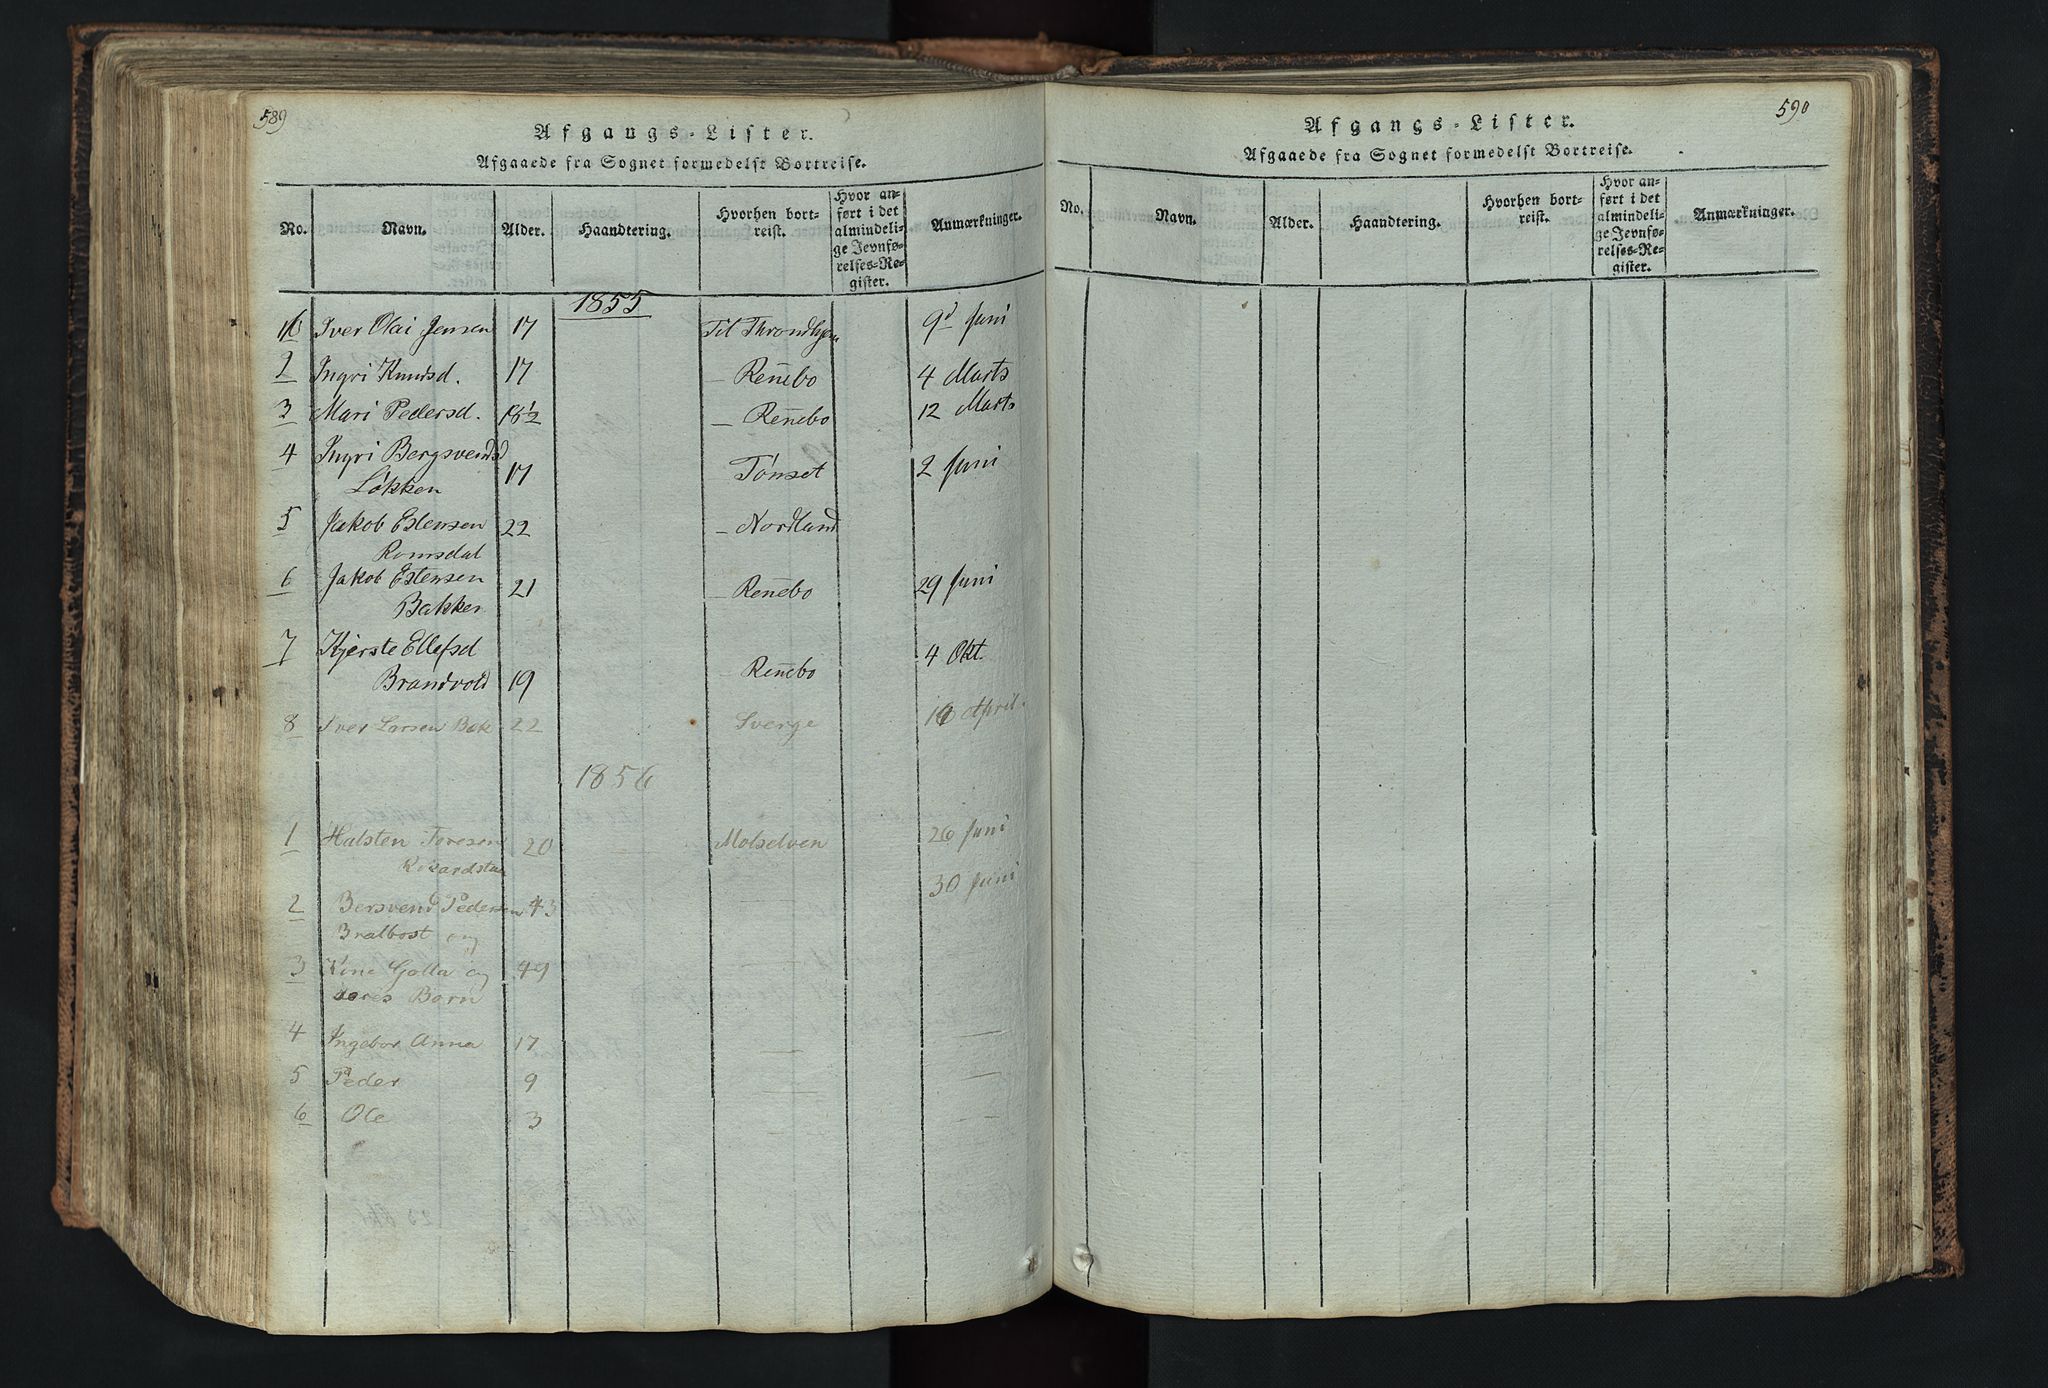 589
Afgangs-Lister.
Afgaaede fra Sognet formedelst Bortreise.
No. Navn. Alder. Haandtering. Hvorhen bortreist. Hvor anført i det almindelige Jevnførelses-Register. Anmærkninger.
1855
Iver Olai Jensen 17 Til Throndhjem 9d Juni
2 Ingri Knudsd. 17 – Reñebo 4 Marts
3 Mari Pedersd. – Reñebo 12 Marts
4 Ingri Bergsvendsd
Løkken 17 Tönset 2 Juni
5 Jakob Estensen 22 – Nordland
Romsdal
6 Jakob Estensen 21 – Reñebo 29 Juni
Bakken
7 Kjerste Ellefsd 4 Okt.
Brandvold 19 – Reñebo
8 Iver Larsen Bak 22 Sverge April
1856
1 Halsten Toresen 20 Molselven 26 Juni
2 Bersvend Pedersen 43 30 Juni
og
3 Golla og 49 – –
deres Børn
4 Ingebor Anna 17 – –
5 Peder 9 – –
6 Ole 3 – –
590
Afgangs-Lister.
Afgaaede fra Sognet formedelst Bortreise.
No. Navn. Alder. Haandtering. Hvorhen bortreist. Hvor anført i det almindelige Jevnførelses-Register. Anmærkninger.